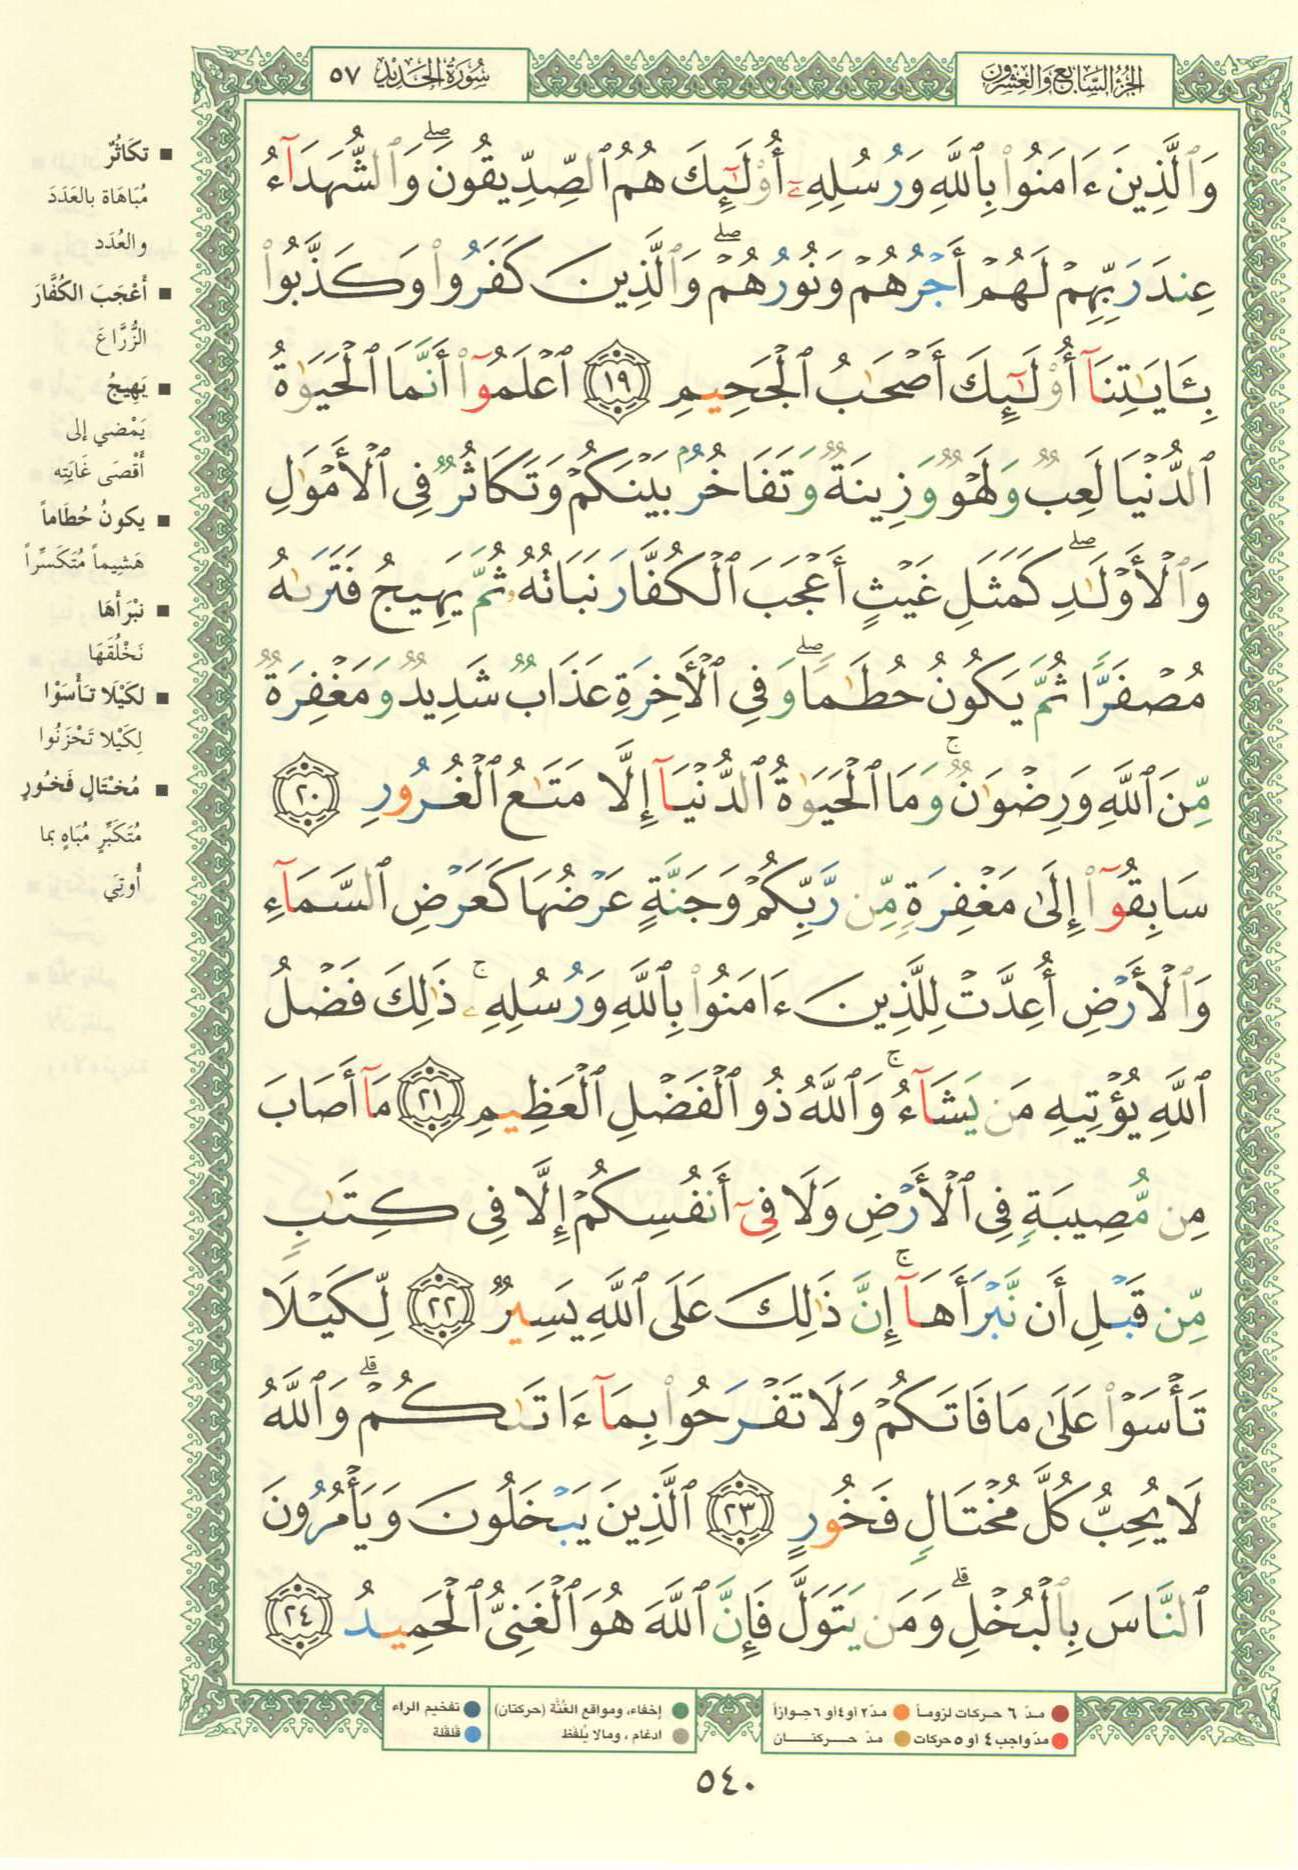 الجُزْءُ السَّابِعُ وَالعِشْرُونَ
سُورَةُ الحَدِيدِ ٥٧
وَٱلَّذِينَ ءَامَنُوا۟ بِٱللَّهِ وَرُسُلِهِۦٓ أُو۟لَٰٓئِكَ هُمُ ٱلصِّدِّيقُونَ ۖ وَٱلشُّهَدَآءُ
عِندَ رَبِّهِمْ لَهُمْ أَجْرُهُمْ وَنُورُهُمْ ۖ وَٱلَّذِينَ كَفَرُوا۟ وَكَذَّبُوا۟
بِـَٔايَٰتِنَآ أُو۟لَٰٓئِكَ أَصْحَٰبُ ٱلْجَحِيمِ ١٩ ٱعْلَمُوٓا۟ أَنَّمَا ٱلْحَيَوٰةُ
ٱلدُّنْيَا لَعِبٌ وَلَهْوٌ وَزِينَةٌ وَتَفَاخُرٌۢ بَيْنَكُمْ وَتَكَاثُرٌ فِى ٱلْأَمْوَٰلِ
وَٱلْأَوْلَٰدِ ۖ كَمَثَلِ غَيْثٍ أَعْجَبَ ٱلْكُفَّارَ نَبَاتُهُۥ ثُمَّ يَهِيجُ فَتَرَىٰهُ
مُصْفَرًّا ثُمَّ يَكُونُ حُطَٰمًا ۖ وَفِى ٱلْـَٔاخِرَةِ عَذَابٌ شَدِيدٌ وَمَغْفِرَةٌ
مِّنَ ٱللَّهِ وَرِضْوَٰنٌ ۚ وَمَا ٱلْحَيَوٰةُ ٱلدُّنْيَآ إِلَّا مَتَٰعُ ٱلْغُرُورِ ٢٠
سَابِقُوٓا۟ إِلَىٰ مَغْفِرَةٍ مِّن رَّبِّكُمْ وَجَنَّةٍ عَرْضُهَا كَعَرْضِ ٱلسَّمَآءِ
وَٱلْأَرْضِ أُعِدَّتْ لِلَّذِينَ ءَامَنُوا۟ بِٱللَّهِ وَرُسُلِهِۦ ۚ ذَٰلِكَ فَضْلُ
ٱللَّهِ يُؤْتِيهِ مَن يَشَآءُ ۚ وَٱللَّهُ ذُو ٱلْفَضْلِ ٱلْعَظِيمِ ٢١ مَآ أَصَابَ
مِن مُّصِيبَةٍ فِى ٱلْأَرْضِ وَلَا فِىٓ أَنفُسِكُمْ إِلَّا فِى كِتَٰبٍ
مِّن قَبْلِ أَن نَّبْرَأَهَآ ۚ إِنَّ ذَٰلِكَ عَلَى ٱللَّهِ يَسِيرٌ ٢٢ لِّكَيْلَا
تَأْسَوْا۟ عَلَىٰ مَا فَاتَكُمْ وَلَا تَفْرَحُوا۟ بِمَآ ءَاتَىٰكُمْ ۗ وَٱللَّهُ
لَا يُحِبُّ كُلَّ مُخْتَالٍ فَخُورٍ ٢٣ ٱلَّذِينَ يَبْخَلُونَ وَيَأْمُرُونَ
ٱلنَّاسَ بِٱلْبُخْلِ ۗ وَمَن يَتَوَلَّ فَإِنَّ ٱللَّهَ هُوَ ٱلْغَنِىُّ ٱلْحَمِيدُ ٢٤
■ تكَاثُرٌ
مُبَاهَاة بالعَدَدَ
والعُدَد
■ أعْجَبَ الكُفَّارَ
الزُّرَّاعَ
■ يَهِيجُ
يَمْضي إلى
أقْصَى غَايَتِه
■ يكونُ حُطَاماً
هَشِيماً مُتَكَسِّراً
■ نبْرَأهَا
نَخْلُقَهَا
■ لكَيْلَا تأسَوْا
لِكَيْلا تَحْزَنُوا
■ مُختَالٍ فَخُورٍ
مُتَكَبِّرٍ مُبَاهٍ بما
أُوتِيَ
مدّ ٦ حركات لزوماً
مدّ ٢ او ٤ او ٦ جوازاً
إخفاء، ومواقع الغُنَّة (حركتان)
تفخيم الراء
مدّ واجب ٤ أو ٥ حركات
مدّ حركتان
ادغام ، ومالا يُلفَظ
قلقلة
٥٤٠